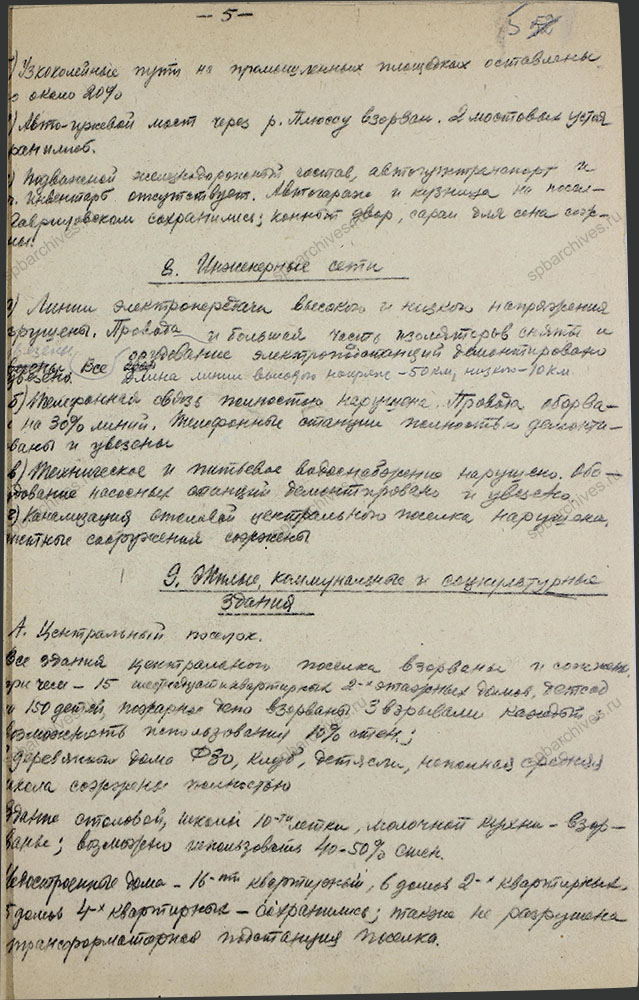 — 5 —
5
Узкоколейные пути на промышленных площадках оставлены
около 20%
Авто-гужевой мост через р. Плюссу взорван. 2 мостовых устоя
Подвижной железнодорожный состав, автогужтранспорт и
инвентарь отсутствует. Автогараж и кузница на посел-
Гавриловском сохранились; конный двор, сараи для сена сож-
ны.
8. Инженерные сети
а) Линии электропередачи высокого и низкого напряжения
рушены. Провода и большая часть изоляторов сняты и
увезены Все орудование электроподстанций демонтировано
увезено. Длина линии высокого напряж – 50 км, низког – 10 км.
б) Телефонная связь полностью нарушена. Провода оборва-
на 30% линий. Телефонные станции полностью демонти-
ваны и увезены
в) Техническое и питьевое водоснабжение нарушено. Обо-
дование насосных станций демонтировано и увезено.
г) Канализация столовой центрального поселка нарушена,
сооружения сожжены
9. Жилые, коммунальные и соцкультурные
здания
А. Центральный поселок.
Все здания центрального поселка взорваны и сожжены,
при чем – 15 шестнадцатиквартирных 2-х этажных домов, детсад
150 детей, пожарное депо взорваны 3 взрывами каждый;
возможность использования 10% стен;
деревянных дома ФЗО, клуб, детясли, неполная средняя
школа сожжены полностью
Здание столовой, школы 10-ти летки, молочной кухни – взор-
ваны; возможно использовать 40-50% стен.
Новостроенные дома – 16-ти квартирный, 6 домов 2-х квартирных,
5 домов 4-х квартирных – сохранились; также не разрушена
трансформаторная подстанция поселка.
spbarchives.ru
spbarchives.ru
spbarchives.ru
spbarchives.ru
spbarchives.ru
spbarchives.ru
spbarchives.ru
spbarchives.ru